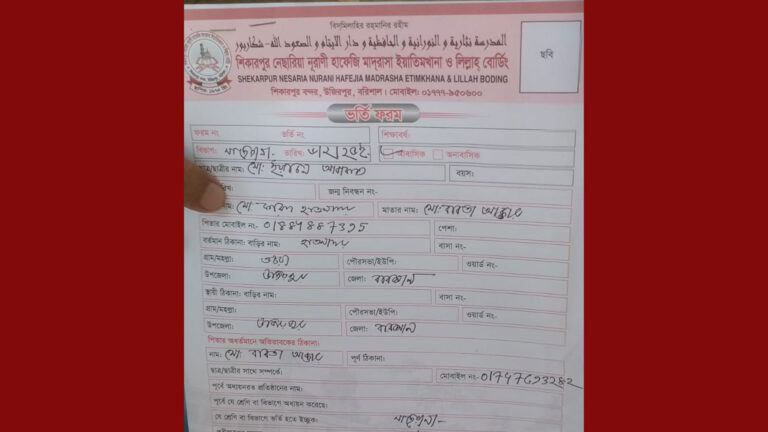 বিস্‌মিল্লাহির রাহমানির রহীম
المدرسة نثارية و النورانية و الحافظية و دار الايتام و الصعود الله- شكارپور
শিকারপুর নেছারিয়া নূরাণী হাফেজি মাদ্‌রাসা ইয়াতিমখানা ও লিল্লাহ্ বোর্ডিং
SHEKARPUR NESARIA NURANI HAFEJIA MADRASHA ETIMKHANA & LILLAH BODING
শিকারপুর বন্দর, উজিরপুর, বরিশাল। মোবাইল: ০১৭৭৭-৯৫০৬০০
ছবি
ভর্তি ফরম
ফরম নং ভর্তি নং শিক্ষাবর্ষ:
বিভাগ: তারিখ: আবাসিক অনাবাসিক
ছাত্র/ছাত্রীর নাম: মো: বয়স:
জন্ম নিবন্ধন নং-
নাম: মো: মাতার নাম: মো: ববিতা আক্তার
পিতার মোবাইল নং- পেশা:
বর্তমান ঠিকানা: বাড়ির নাম: হাওলাদার বাসা নং-
গ্রাম/মহল্লা: পৌরসভা/ইউপি: ওয়ার্ড নং-
উপজেলা: উজিরপুর জেলা: বরিশাল
স্থায়ী ঠিকানা: বাড়ির নাম: বাসা নং-
গ্রাম/মহল্লা: পৌরসভা/ইউপি: ওয়ার্ড নং-
উপজেলা: উজিরপুর জেলা: বরিশাল
পিতার অবর্তমানে অভিভাবকের ঠিকানা:
নাম: মো: ববিতা আক্তার পূর্ণ ঠিকানা:
ছাত্র/ছাত্রীর সাথে সম্পর্কে: মোবাইল নং-
পূর্বে অধ্যয়নরত প্রতিষ্ঠানের নাম:
পূর্বে যে শ্রেণি বা বিভাগে অধ্যয়ন করেছে:
যে শ্রেণি বা বিভাগে ভর্তি হতে ইচ্ছুক: